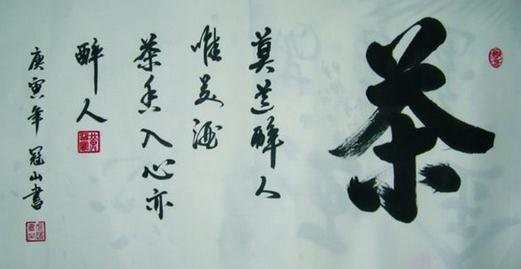 茶
莫道醉人
唯美酒
茶香入心亦
醉人
庚寅年 冠山書